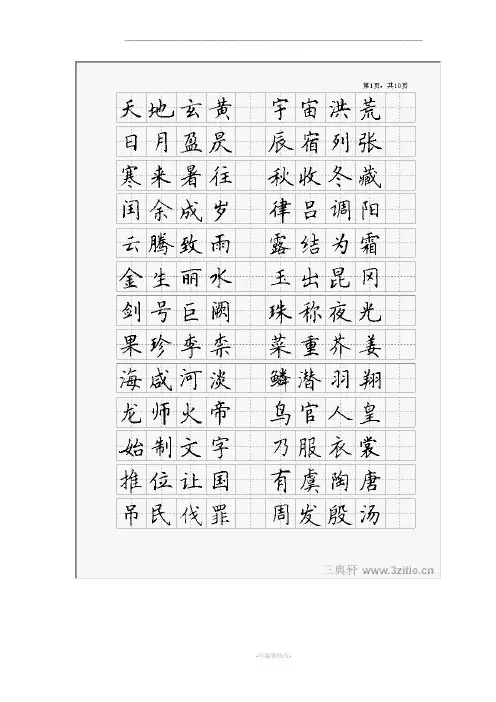 第1页，共10页
天地玄黄 宇宙洪荒
日月盈昃 辰宿列张
寒来暑往 秋收冬藏
闰余成岁 律吕调阳
云腾致雨 露结为霜
金生丽水 玉出昆冈
剑号巨阙 珠称夜光
果珍李柰 菜重芥姜
海咸河淡 鳞潜羽翔
龙师火帝 鸟官人皇
始制文字 乃服衣裳
推位让国 有虞陶唐
吊民伐罪 周发殷汤
三典轩 www.3zitie.cn